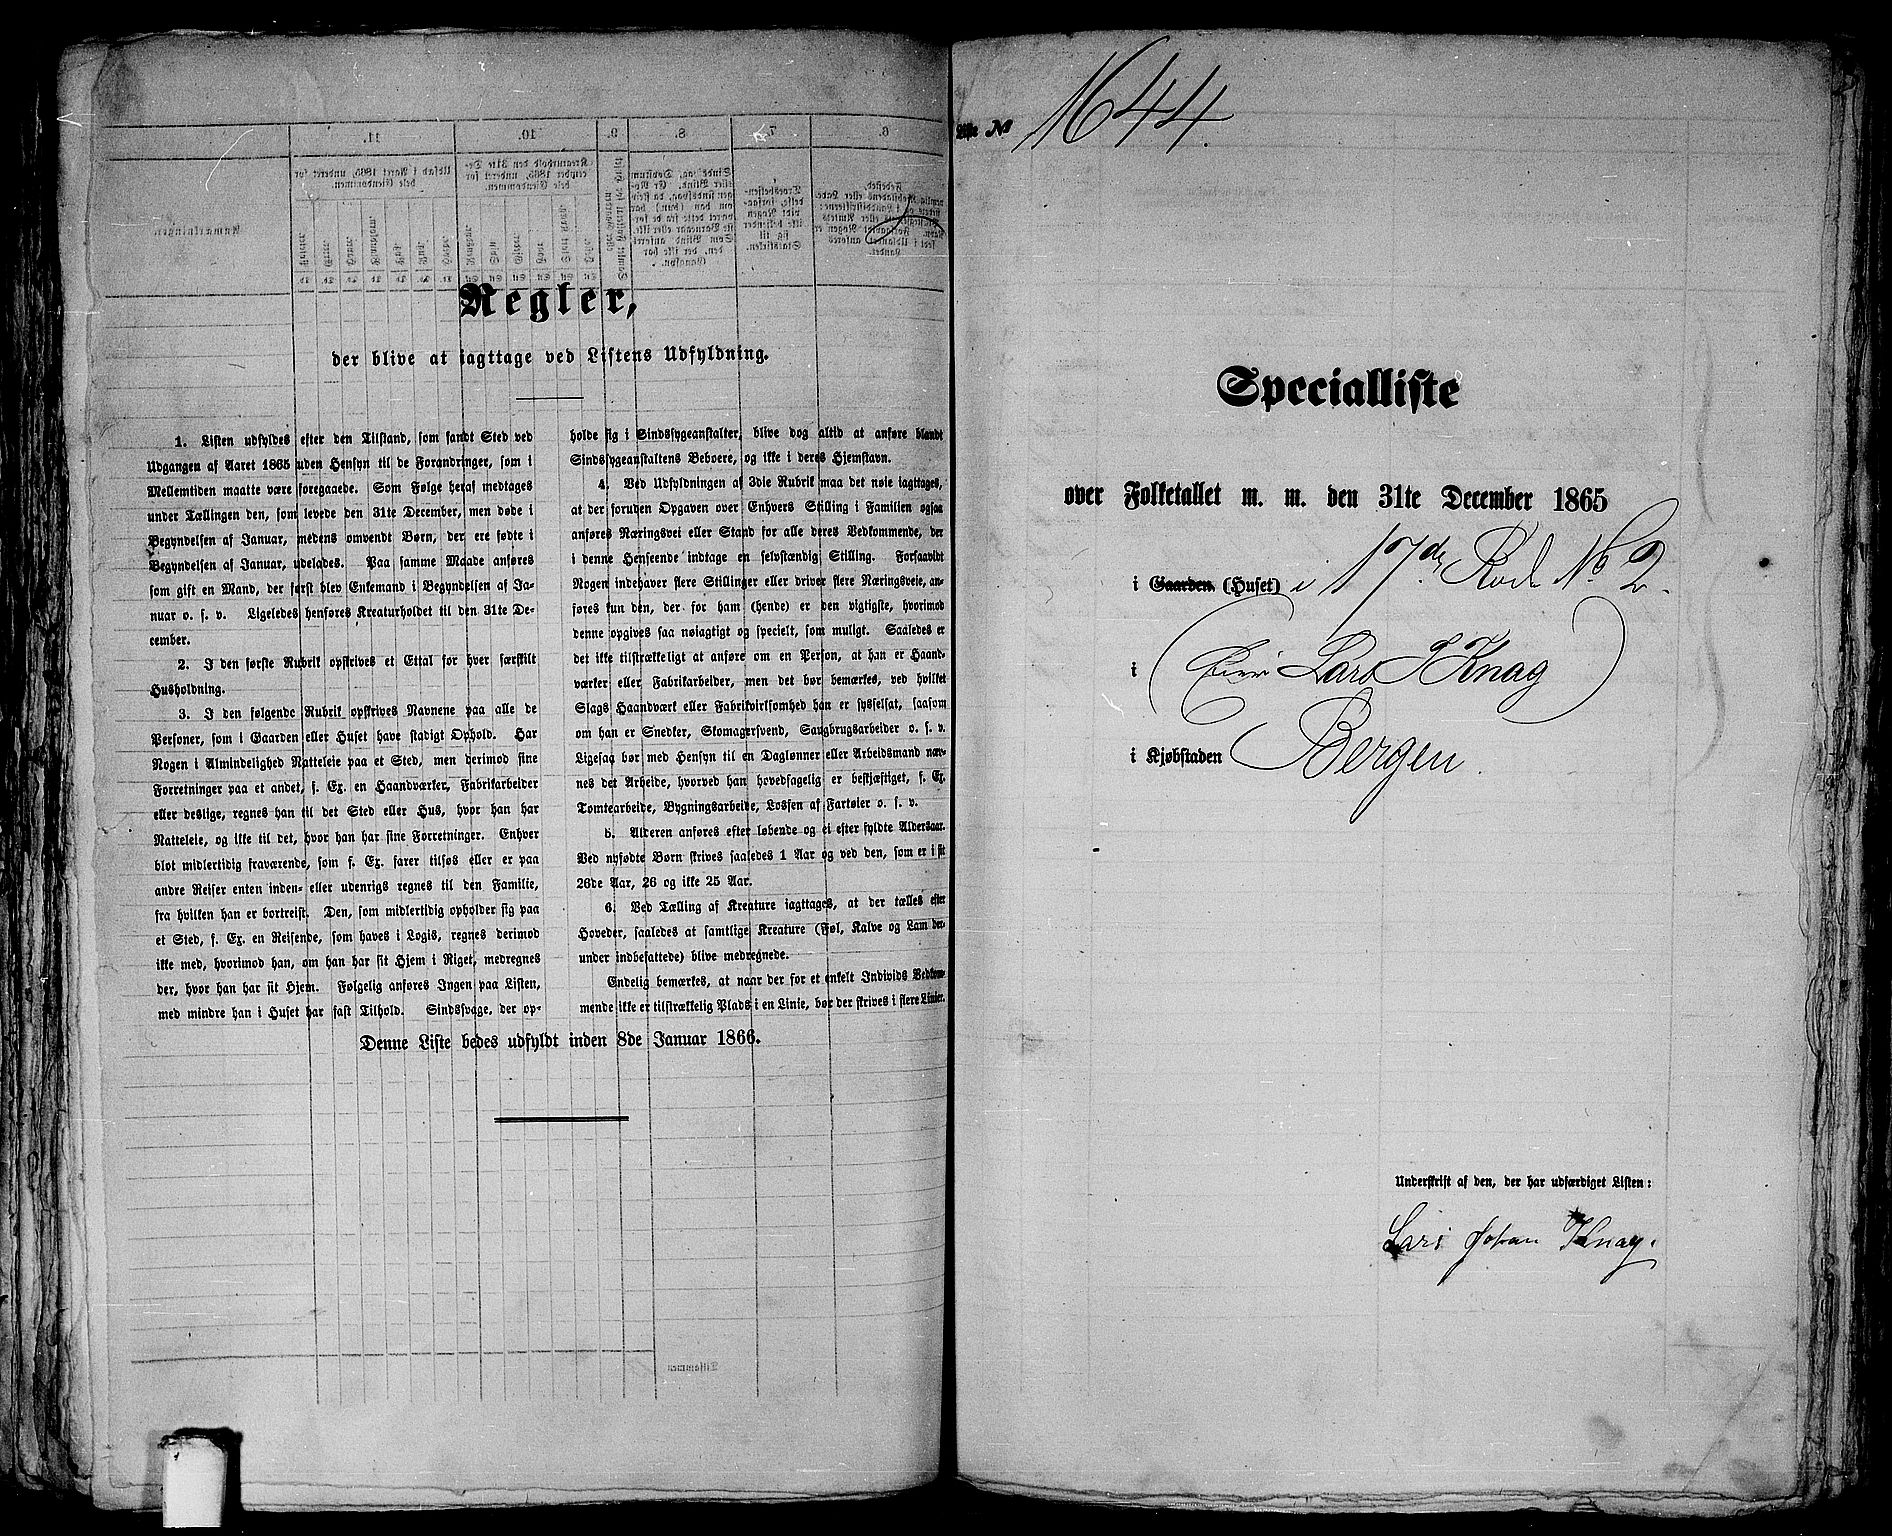 Regler,
der blive at iagttage ved Listens Udfyldning.
1. Listen udfyldes efter den Tilstand, som fandt Sted ved
Udgangen af Aaret 1865 uden Hensyn til de Forandringer, som i
Mellemtiden maatte være foregaaede. Som Følge heraf medtages
under Tællingen den, som levede den 31te December, men døde i
Begyndelsen af Januar, medens omvendt Børn, der ere fødte i
Begyndelsen af Januar, udelades. Paa samme Maade anføres
som gift en Mand, der først blev Enkemand i Begyndelsen af Ja-
nuar o. s. v. Ligeledes henføres Kreaturholdet til den 31te De-
cember.
2. I den første Rubrik opskrives et Ettal for hver særskilt
Husholdning.
3. I den følgende Rubrik opskrives Navnene paa alle de
Personer, som i Gaarden eller Huset have stadigt Ophold. Har
Nogen i Almindelighed Natteleie paa et Sted, men derimod sine
Forretninger paa et andet, f. Ex. en Haandværker, Fabrikarbeider
eller deslige, regnes han til det Sted eller Hus, hvor han har
Natteleie, og ikke til det, hvor han har sine Forretninger. Enhver
blot midlertidig fraværende, som f. Ex. farer tilsøs eller er paa
andre Reiser enten inden- eller udenrigs regnes til den Familie,
fra hvilken han er bortreist. Den, som midlertidig opholder sig paa
et Sted, f. Ex. en Reisende, som haves i Logis, regnes derimod
ikke med, hvorimod han, om han har sit Hjem i Riget, medregnes
der, hvor han har sit Hjem. Følgelig anføres Ingen paa Listen,
med mindre han i Huset har fast Tilhold. Sindssvage, der op-
holde sig i Sindssygeanstalter, blive dog altid at anføre blandt
Sindssygeanstaltens Beboere, og ikke i deres Hjemstavn.
4. Ved Udfyldningen af 3die Rubrik maa det nøie iagttages,
at der foruden Opgaven over Enhvers Stilling i Familien ogsaa
anføres Næringsvei eller Stand for alle deres Vedkommende, der
i denne Henseende indtage en selvstændig Stilling. Forsaavidt
Nogen indehaver flere Stillinger eller driver flere Næringsveie, an-
føres kun den, der for ham (hende) er den vigtigste, hvorimod
denne opgives saa nøiagtigt og specielt, som muligt. Saaledes er
det ikke tilstrækkeligt at anføre om en Person, at han er Haand-
værker eller Fabrikarbeider, men det bør bemærkes, ved hvilket
Slags Haandværk eller Fabrikvirksomhed han er sysselsat, saasom
om han er Snedker, Skomagersvend, Saugbrugsarbeider o. s. v.
Ligesaa bør med Hensyn til en Dagløner eller Arbeidsmand næv-
nes det Arbeide, hvorved han hovedsagelig er beskjæftiget, f. Ex.
Tomtearbeide, Bygningsarbeide, Lossen af Fartøier o. s. v.
5. Alderen anføres efter løbende og ei efter fyldte Aldersaar.
Ved nyfødte Børn skrives saaledes 1 Aar og ved den, som er i sit
26de Aar, 26 og ikke 25 Aar.
6. Ved Tælling af Kreature iagttages, at der tælles efter
Hoveder, saaledes at samtlige Kreature (Føl, Kalve og Lam der-
under indbefattede) blive medregnede.
Endelig bemærkes, at naar der for et enkelt Individs Vedkom-
mende ikke er tilstrækkelig Plads i en Linie, bør der skrives i flere Linier.
Denne Liste bedes udfyldt inden 8de Januar 1866.
Liste No 1644.
Specialliste
over Folketallet m. m. den 31te December 1865
i Gaarden (Huset) i 17de Rode No 2.
i (Eier Lars J Knag)
i Kjøbstaden Bergen.
Underskrift af den, der har udfærdiget Listen:
Lars Johan Knag.